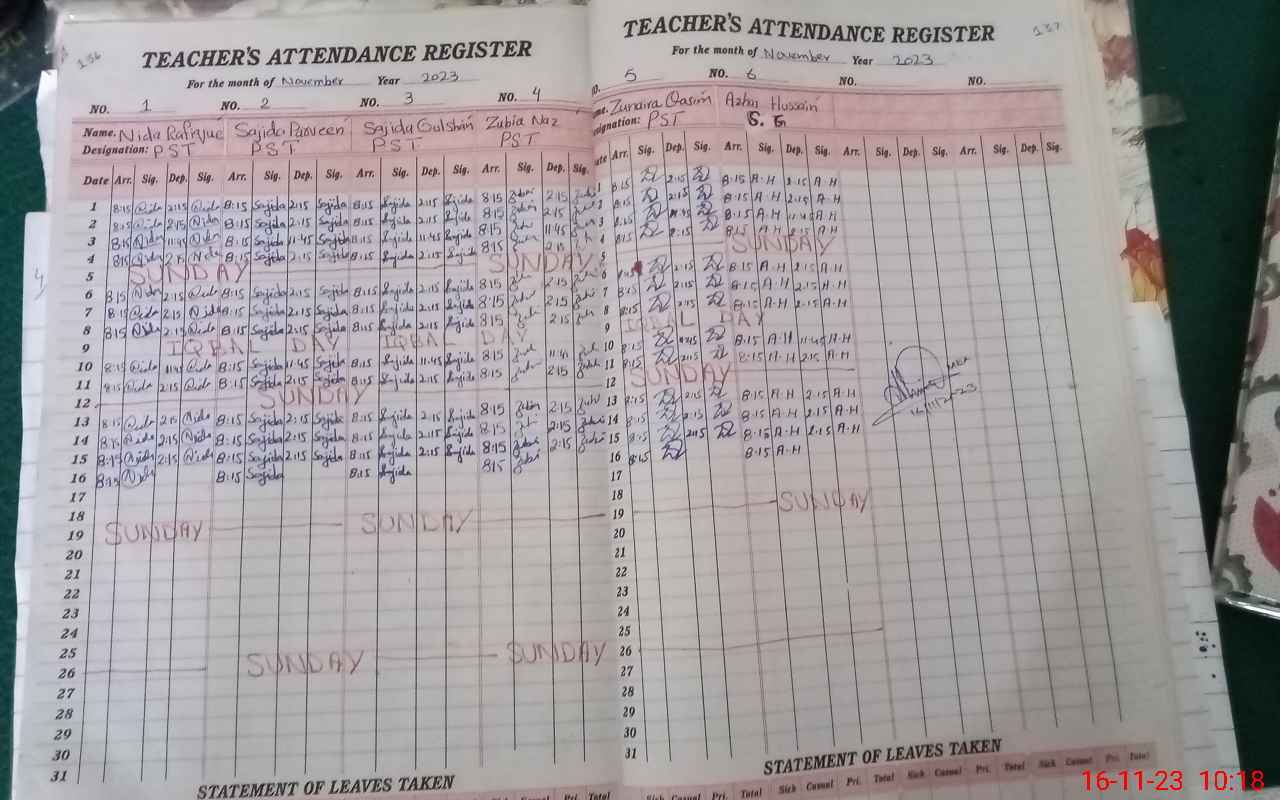 136
TEACHER'S ATTENDANCE REGISTER
For the month of November Year 2023
NO. 1 NO. 2 NO. 3 NO. 4
Name. Nida Rafique Sajida Parveen Sajida Gulshan Zubia Naz
Designation: PST PST PST PST
Date Arr. Sig. Dep. Sig. Arr. Sig. Dep. Sig. Arr. Sig. Dep. Sig. Arr. Sig. Dep. Sig.
1 8:15 Nida 2:15 Nida 8:15 Sajida 2:15 Sajida 8:15 Sajida 2:15 Sajida 8:15 2:15
2 8:15 Nida 2:15 Nida 8:15 Sajida 2:15 Sajida 8:15 Sajida 2:15 Sajida 8:15 2:15
3 8:15 Nida 11:45 Nida 8:15 Sajida 11:45 Sajida 8:15 Sajida 11:45 Sajida 8:15 11:45
4 8:15 Nida 2:15 Nida 8:15 Sajida 2:15 Sajida 8:15 Sajida 2:15 Sajida 8:15 2:15
5 SUNDAY SUNDAY
6 8:15 Nida 2:15 Nida 8:15 Sajida 2:15 Sajida 8:15 Sajida 2:15 Sajida 8:15 2:15
7 8:15 Nida 2:15 Nida 8:15 Sajida 2:15 Sajida 8:15 Sajida 2:15 Sajida 8:15 2:15
8 8:15 Nida 2:15 Nida 8:15 Sajida 2:15 Sajida 8:15 Sajida 2:15 Sajida 8:15 2:15
9 IQBAL DAY IQBAL DAY
10 8:15 Nida 11:45 Nida 8:15 Sajida 11:45 Sajida 8:15 Sajida 11:45 Sajida 8:15 11:45
11 8:15 Nida 2:15 Nida 8:15 Sajida 2:15 Sajida 8:15 Sajida 2:15 Sajida 8:15 2:15
12 SUNDAY
13 8:15 Nida 2:15 Nida 8:15 Sajida 2:15 Sajida 8:15 Sajida 2:15 Sajida 8:15 2:15
14 8:15 Nida 2:15 Nida 8:15 Sajida 2:15 Sajida 8:15 Sajida 2:15 Sajida 8:15 2:15
15 8:15 Nida 2:15 Nida 8:15 Sajida 2:15 Sajida 8:15 Sajida 2:15 Sajida 8:15 2:15
16 8:15 Nida 8:15 Sajida 8:15 Sajida 8:15
17
18
19 SUNDAY SUNDAY
20
21
22
23
24
25
26 SUNDAY SUNDAY
27
28
29
30
31
STATEMENT OF LEAVES TAKEN
Sick Casual Pri. Total
137
TEACHER'S ATTENDANCE REGISTER
For the month of November Year 2023
5 NO. 6 NO. NO.
Zunaira Qasim Azhar Hussain
PST S.G
Arr. Sig. Dep. Sig. Arr. Sig. Dep. Sig. Arr. Sig. Dep. Sig. Arr. Sig. Dep. Sig.
1 8:15 2:15 8:15 A.H 2:15 A.H
2 8:15 2:15 8:15 A.H 2:15 A.H
3 8:15 11:45 8:15 A.H 11:45 A.H
4 8:15 2:15 8:15 A.H 2:15 A.H
5 SUNDAY
6 8:15 2:15 8:15 A.H 2:15 A.H
7 8:15 2:15 8:15 A.H 2:15 A.H
8 8:15 2:15 8:15 A.H 2:15 A.H
9 IQBAL DAY
10 8:15 11:45 8:15 A.H 11:45 A.H
11 8:15 2:15 8:15 A.H 2:15 A.H
12 SUNDAY
13 8:15 2:15 8:15 A.H 2:15 A.H
14 8:15 2:15 8:15 A.H 2:15 A.H
15 8:15 2:15 8:15 A.H 2:15 A.H
16 8:15 8:15 A.H
17
18
19 SUNDAY
20
21
22
23
24
25
26
27
28
29
30
31
16/11/2023
STATEMENT OF LEAVES TAKEN
Sick Casual Pri. Total Sick Casual Pri. Total Sick Casual Pri. Total
16-11-23 10:18